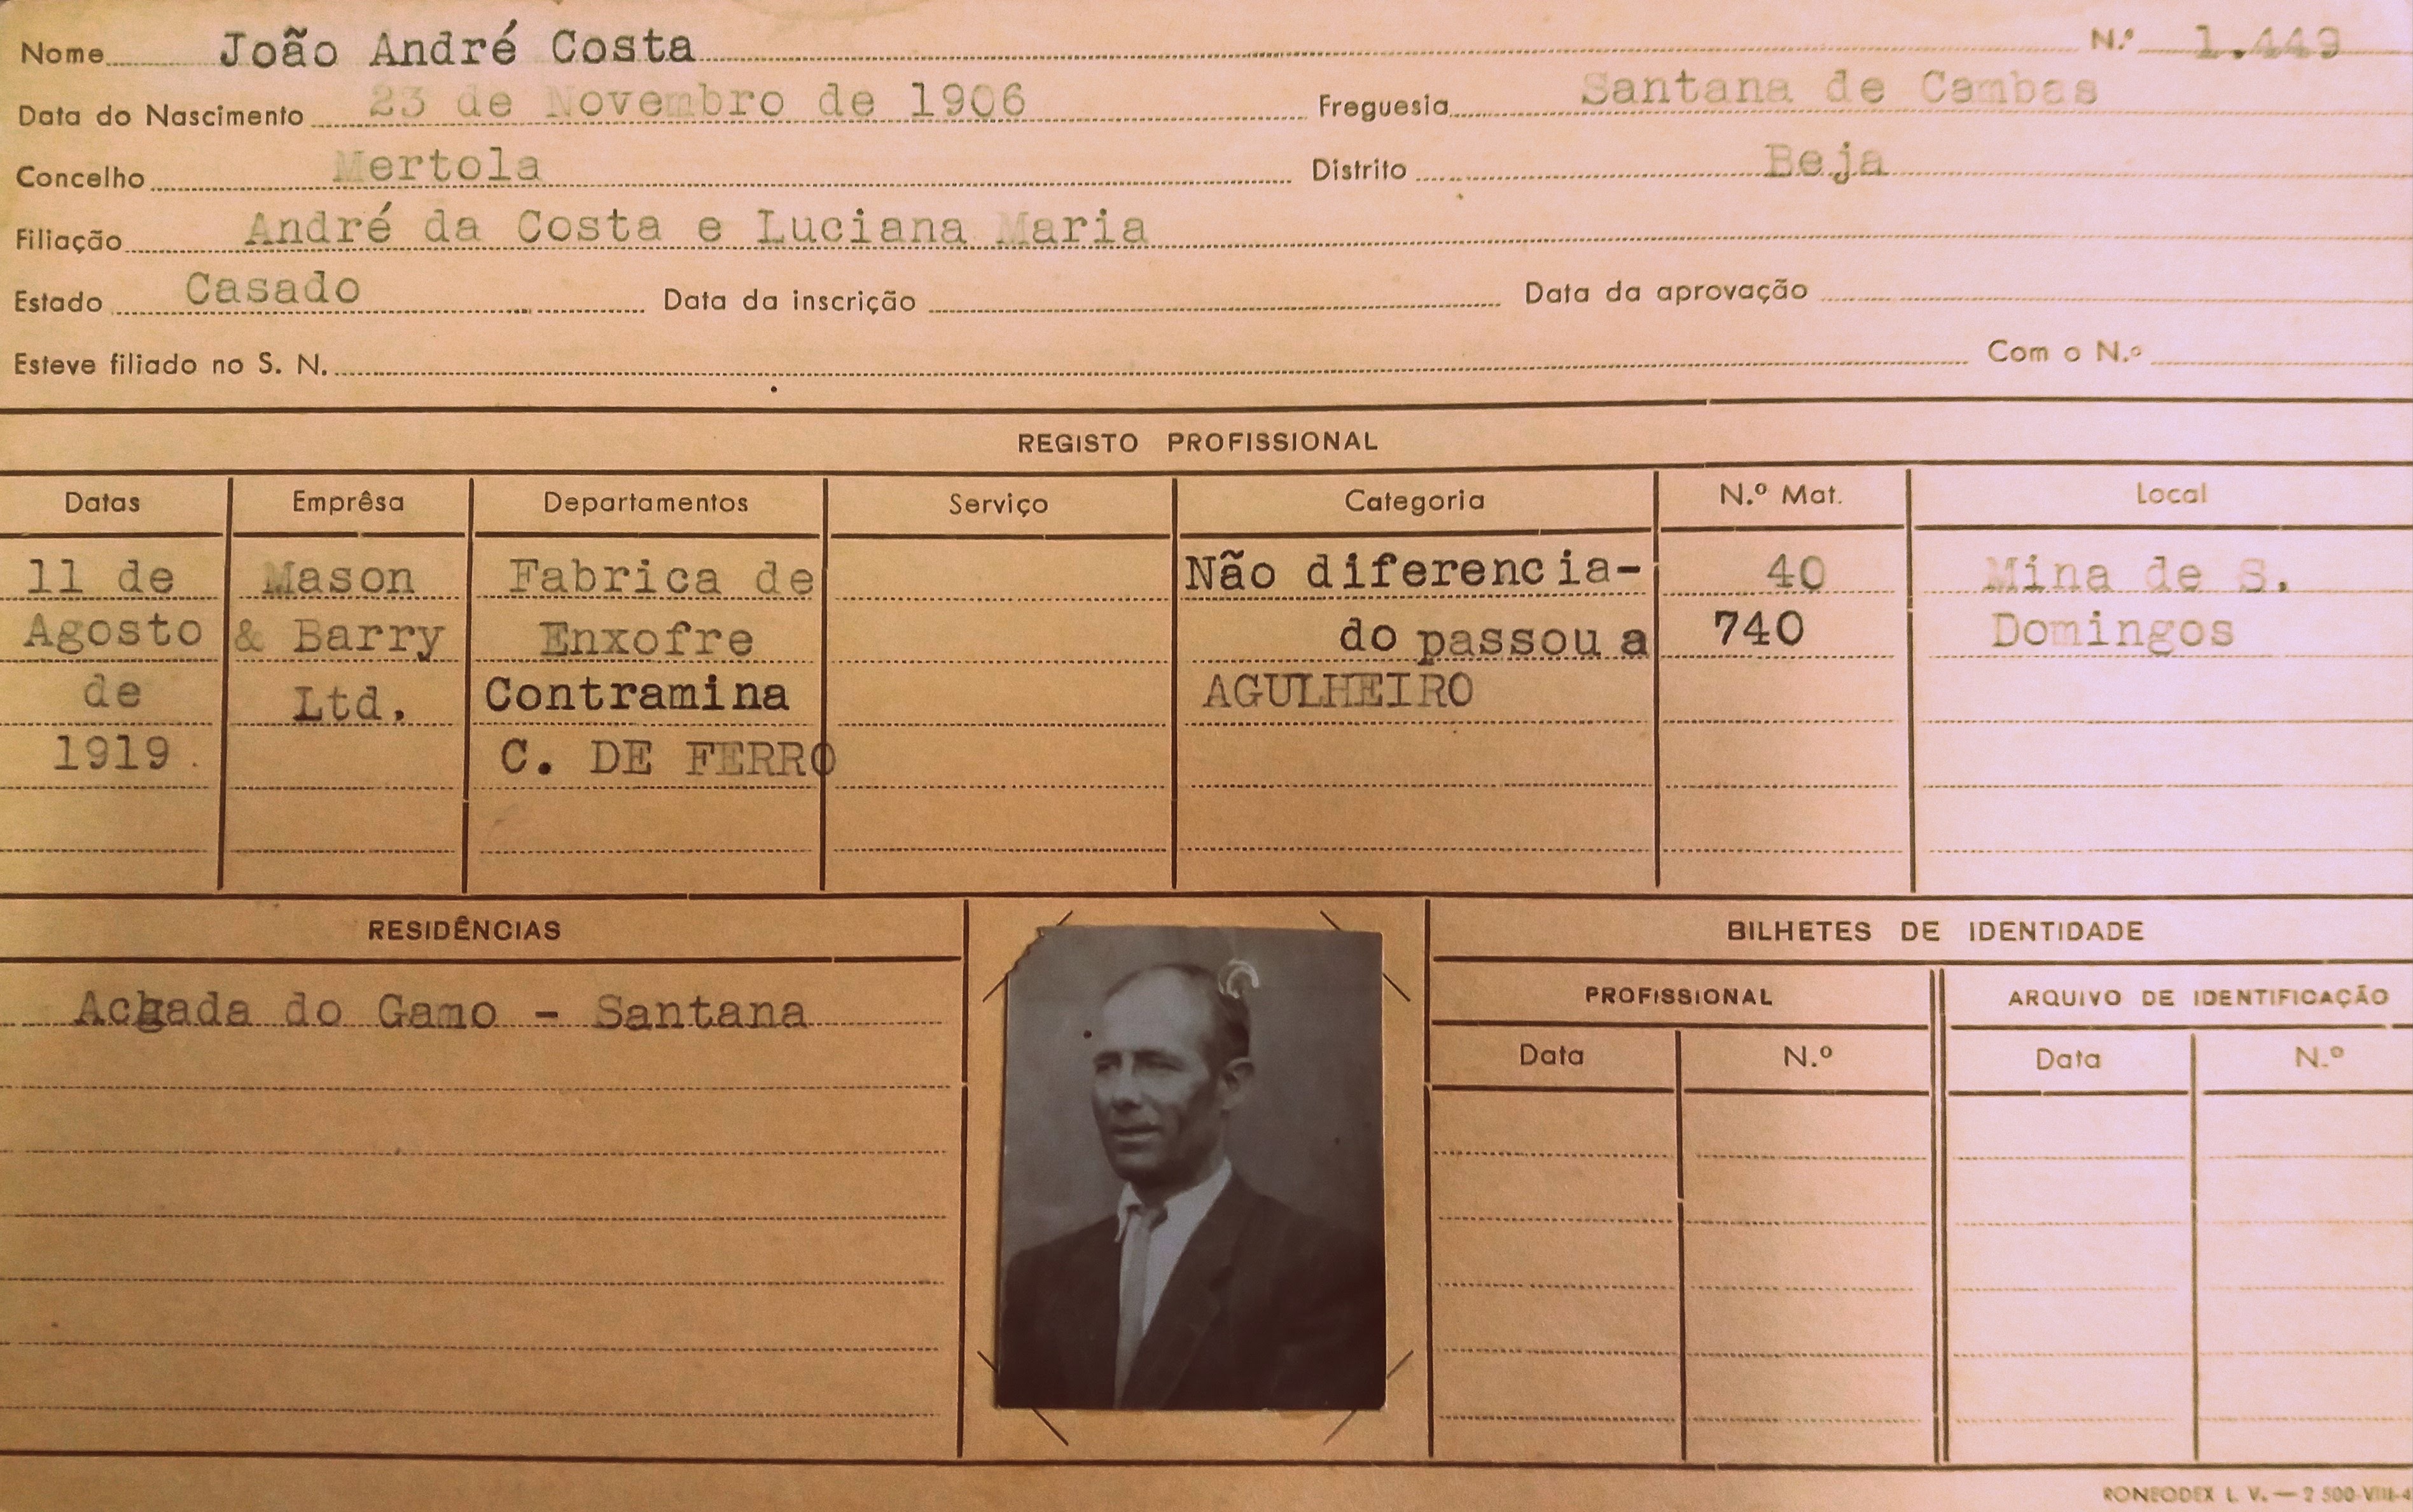 Nome João André Costa N.º 1.449
Data do Nascimento 23 de Novembro de 1906 Freguesia Santana de Cambas
Concelho Mertola Distrito Beja
Filiação André da Costa e Luciana Maria
Estado Casado Data da inscrição Data da aprovação
Esteve filiado no S. N. Com o N.º
REGISTO PROFISSIONAL
Datas Emprêsa Departamentos Serviço Categoria N.º Mat. Local
11 de Mason Fabrica de Não diferencia- 40 Mina de S.
Agosto & Barry Enxofre do passou a 740 Domingos
de Ltd. Contramina AGULHEIRO
1919. C. DE FERRO
RESIDÊNCIAS BILHETES DE IDENTIDADE
PROFISSIONAL ARQUIVO DE IDENTIFICAÇÃO
Achada do Gamo - Santana
Data N.º Data N.º
RONEODEX L. V. — 2 500-VIII-4